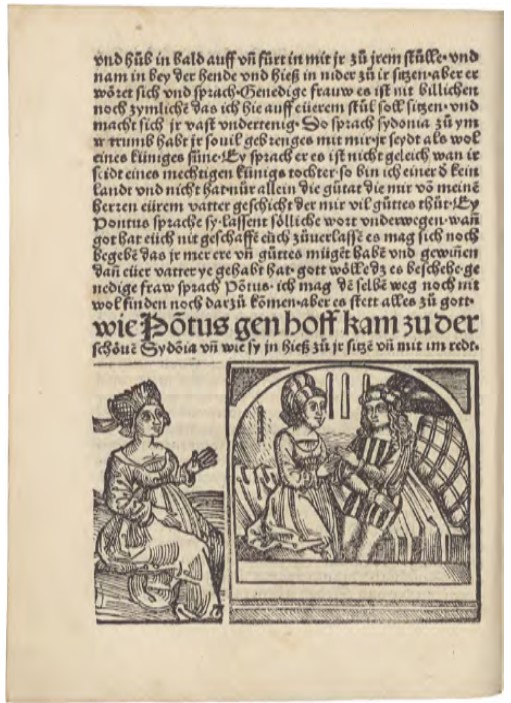 vnd hůb in bald auff vñ fůrt in mit jr zů jrem stůlle·vnd
nam in bey der hende vnd hieß in nider zů ir sitzen·aber er
wöret sich vnd sprach·Genedige frauw es ist nit billichen
noch zymlichē das ich hie auff eüerem stůl soll sitzen·vnd
macht sich jr vast vndertenig· So sprach sydonia zů ym
warumb habt jr souil geb renges mit mir·jr seydt als wol
eines küniges süne·Ey sprach er es ist nicht geleich wan ir
seidt eines mechtigen künigs tochter·so bin ich einer d̄ kein
landt vnd nicht hat·nür allein die gütat die mir võ meinē
herren eürem vatter geschicht der mir vil güttes thůt·Ey
Pontus sprache sy·lassent sölliche wort vnderwegen·wañ
got hat eüch nit geschaffē eüch zůuerlassē es mag sich noch
begebē das jr mer ere vñ güttes müget habē vnd gewinen
dañ eüer vatter ye gehabt hat·gott wölle dz es beschehe·ge
nedige fraw sprach Põtus·ich mag dē selbē weg noch nit
wol finden noch darzů kömen·aber es stett alles zů gott·
wie Põtus gen hoff kam zu der
schönē Sydõia vñ wie sy jn hieß zů jr sitzē vñ mit im redt·